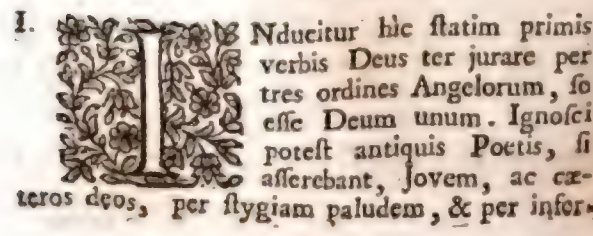 I. INducitur hìc ſtatim primis
verbis Deus ter jurare per
tres ordines Angelorum, ſo
eſſe Deum unum. Ignoſci
poteſt antiquis Poetis, ſi
aſſerebant, Jovem, ac cæ-
teros deos, per ſtygiam paludem, & per infor-